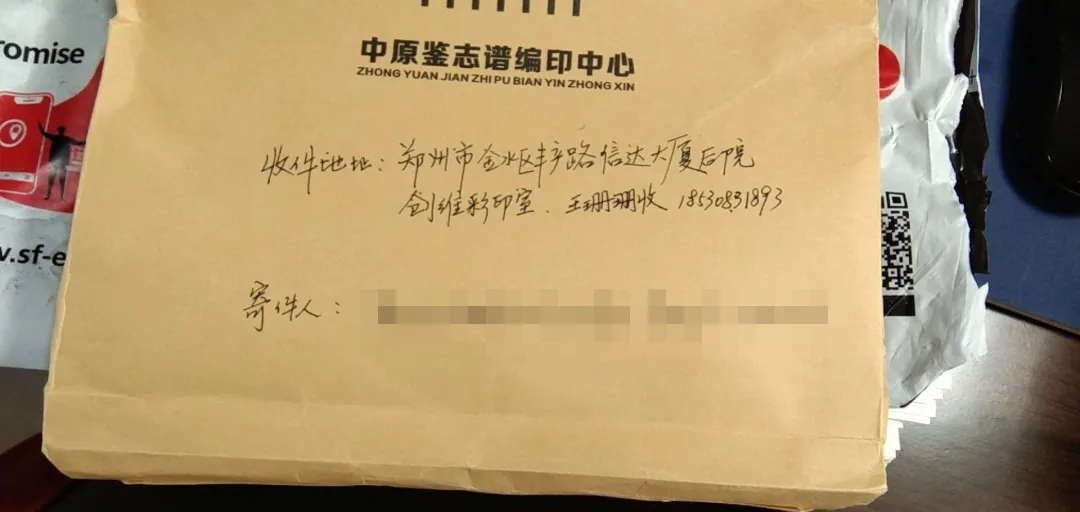 romise
中原鉴志谱编印中心
ZHONG YUAN JIAN ZHI PU BIAN YIN ZHONG XIN
收件地址：郑州市金水区丰产路信达大厦后院
创维彩印室．王珊珊收 18530831893
v.sf-e
寄件人：